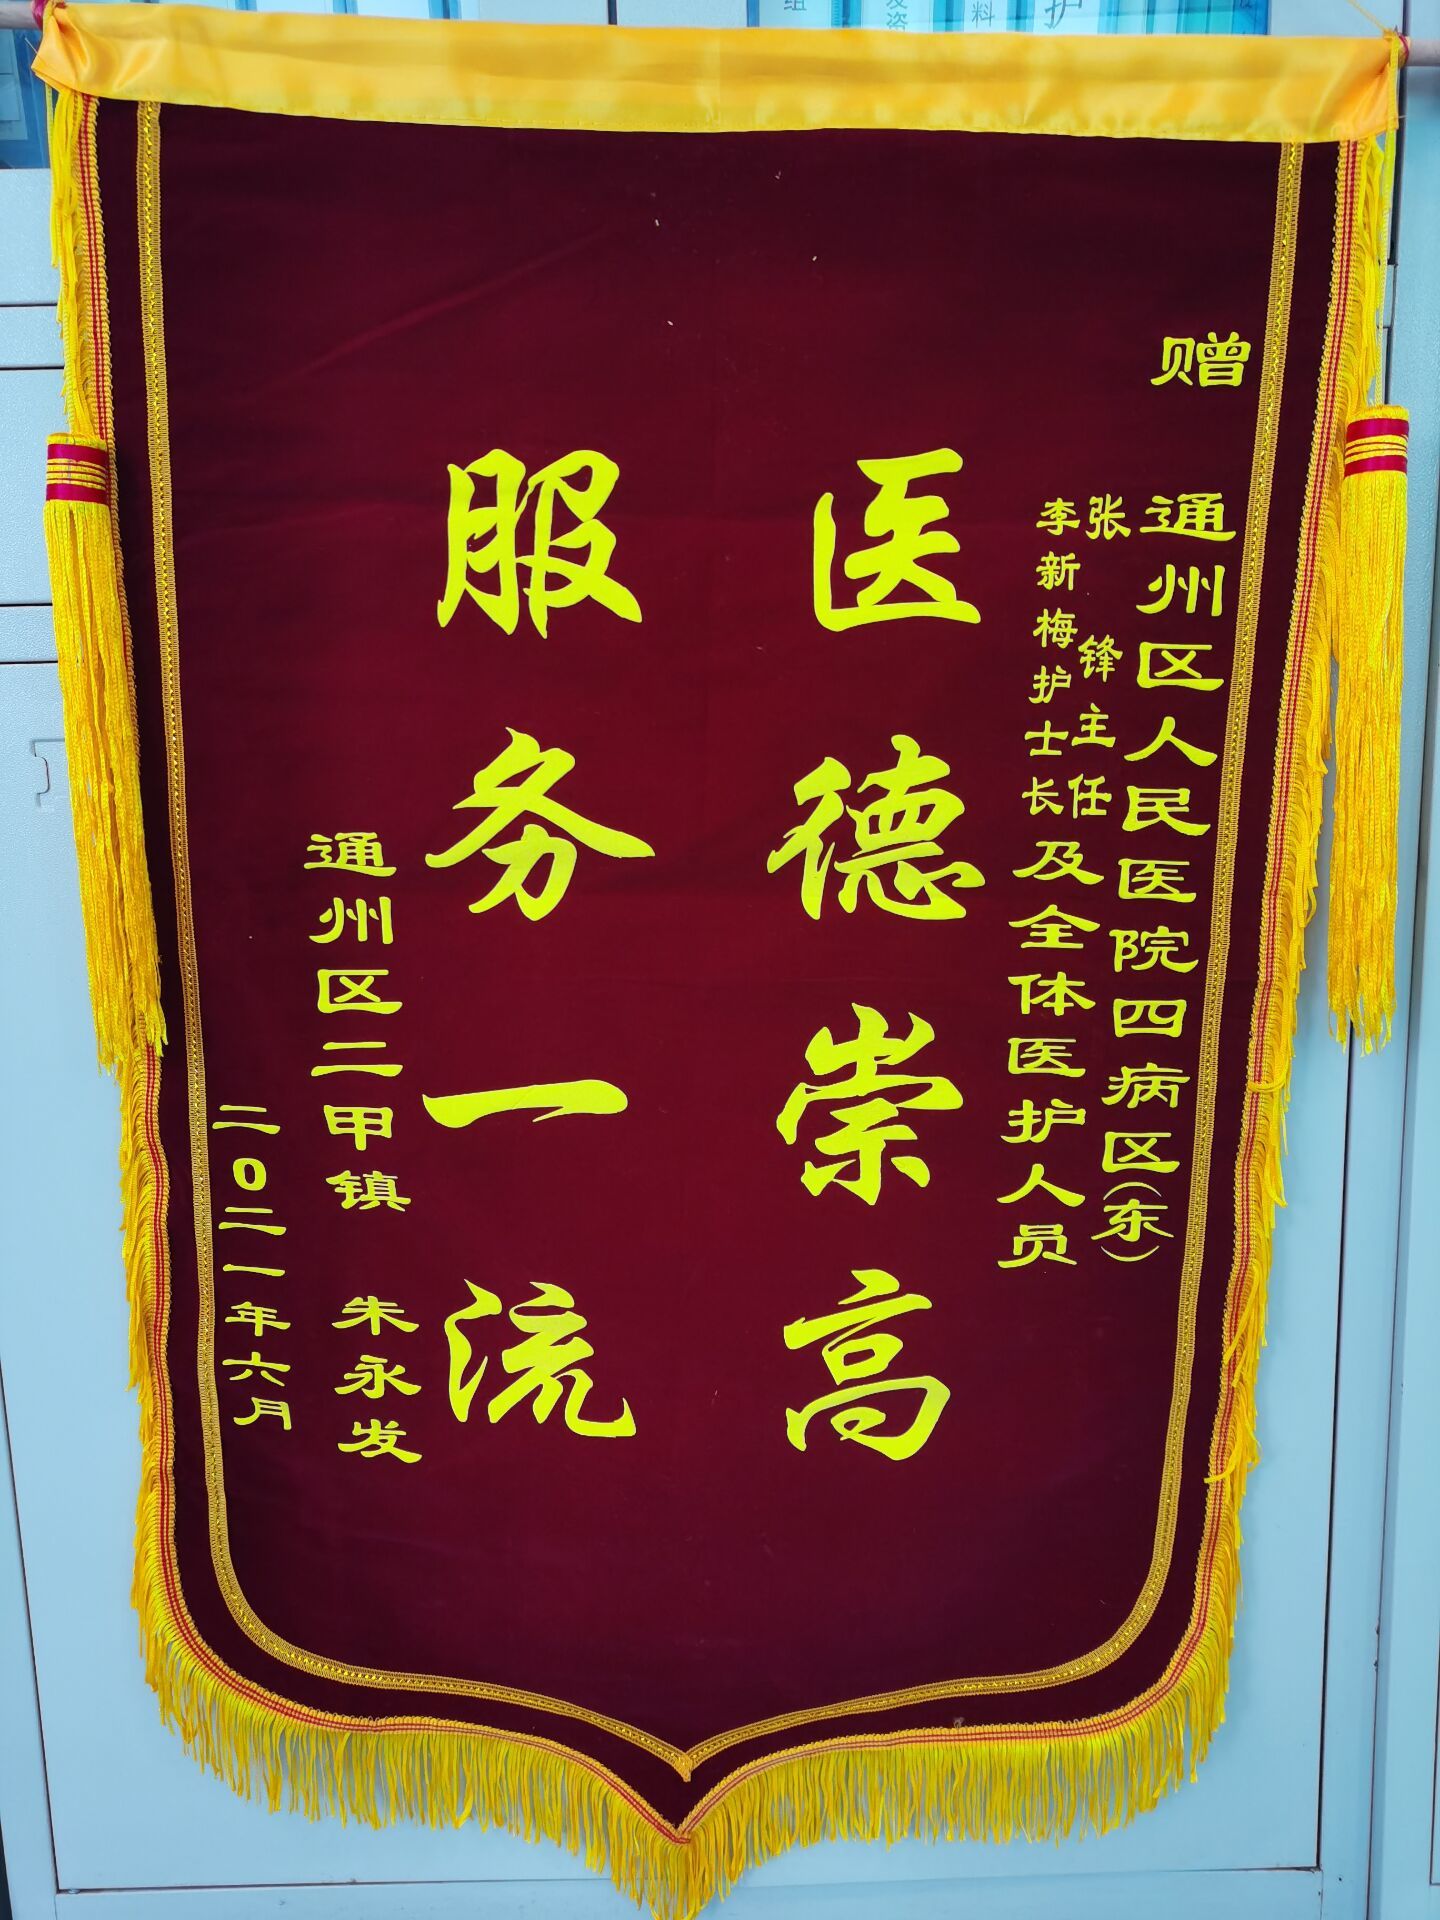 组
发咨
料
护
赠
通州区人民医院四病区(东)
张锋主任
李新梅护士长及全体医护人员
医德崇高
服务一流
通州区二甲镇 朱永发
二0二一年六月